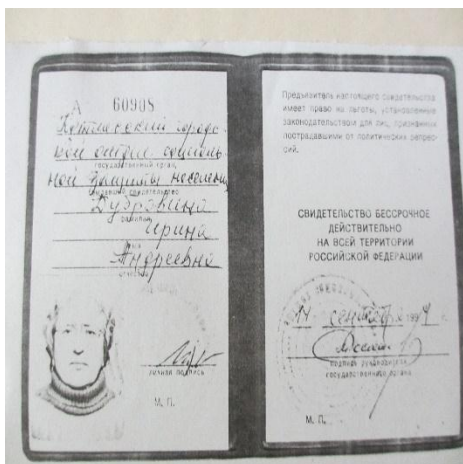 А 60908
Котласский городс-
кой отдел социаль-
государственный орган,
ной защиты населения
выдавший свидетельство
Дубровина
фамилия
Ирина
имя
Андреевна
отчество
личная подпись
М. П.
Предъявитель настоящего свидетельства
имеет право на льготы, установленные
законодательством для лиц, признанных
пострадавшими от политических репрес-
сий.
СВИДЕТЕЛЬСТВО БЕССРОЧНОЕ
ДЕЙСТВИТЕЛЬНО
НА ВСЕЙ ТЕРРИТОРИИ
РОССИЙСКОЙ ФЕДЕРАЦИИ
сентября 199
подпись руководителя
государственного органа
М. П.